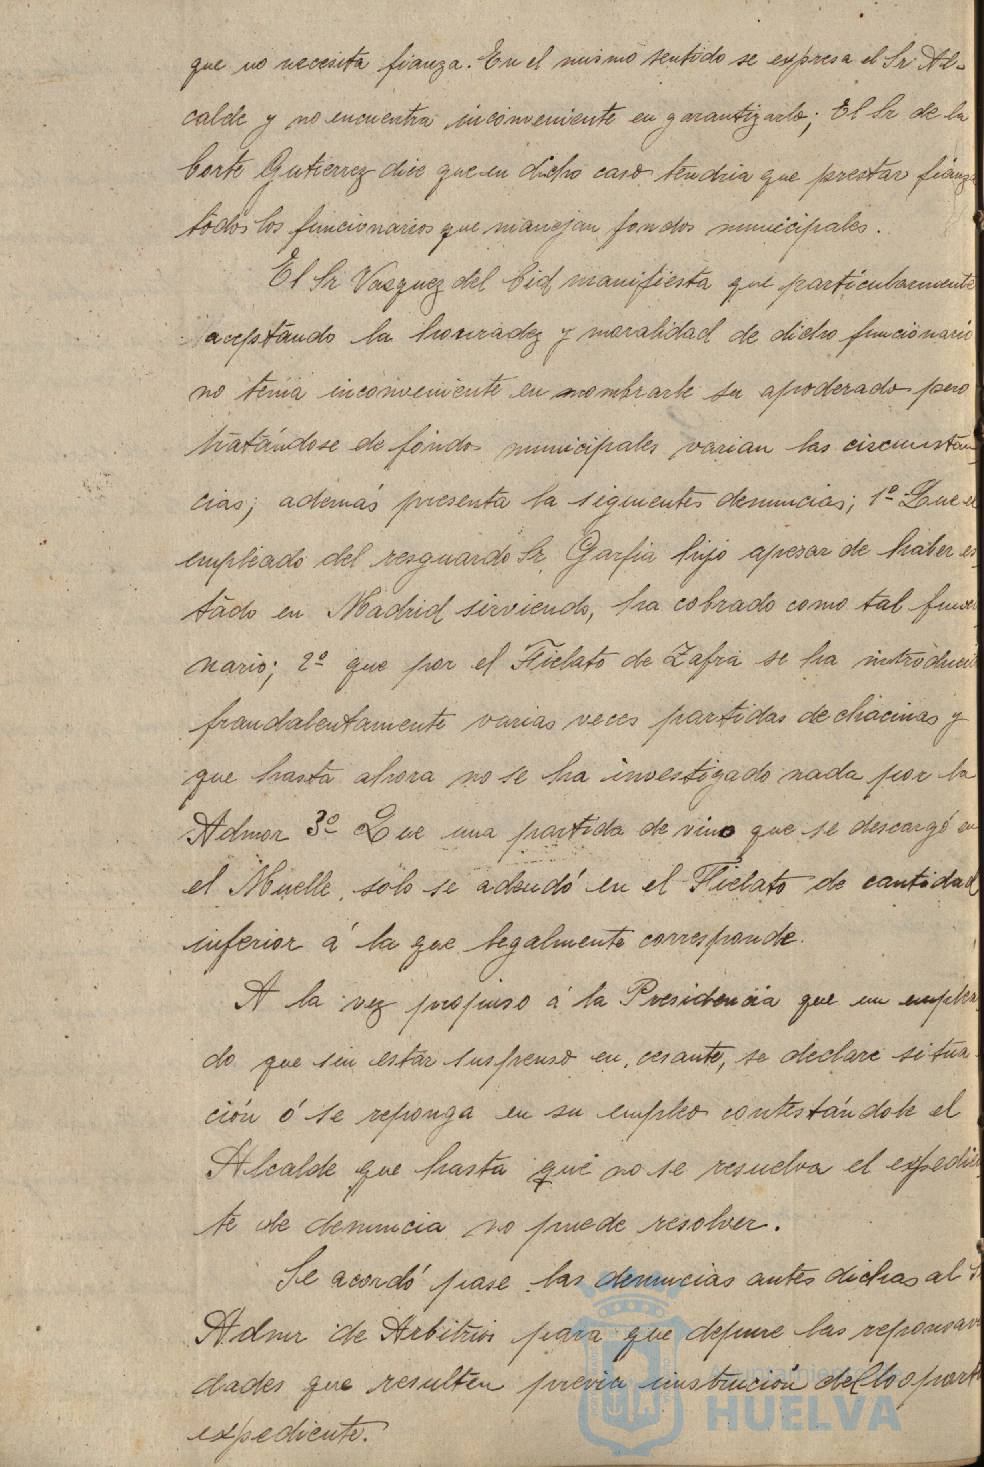 que no necesita fianza. En el mismo sentido se expresa el Sr Al-
calde y no encuentra inconveniente en garantizarlo; El Sr de la
Corte Gutierrez dice que en dicho caso tendria que prestar fianza
todos los funcionarios que manejan fondos municipales.
El Sr Vazquez del Cid manifiesta que particularmente
aceptando la honradez y moralidad de dicho funcionario
no tenia inconveniente en nombrarle su apoderado pero
tratándose de fondos municipales varian las circunstan-
cias; además presenta la siguientes denuncias; 1º Que el
empleado del resguardo Sr Garfia hijo apesar de haber es-
tado en Madrid sirviendo, ha cobrado como tal funcio-
nario; 2º que por el Fielato de Zafra se ha introducido
fraudalentamente varias veces partidas de chacinas y
que hasta ahora no se ha investigado nada por la
Admor 3º Que una partida de vino que se descargó en
el Muelle, solo se adeudó en el Fielato de cantidad
inferior á la que legalmente corresponde.
A la vez propuso á la Presidencia que un emplea-
do que sin estar suspenso en cesante, se declare situa-
ción ó se reponga en su empleo contestándole el
Alcalde que hasta que no se resuelva el expedien-
te de denuncia no puede resolver.
Se acordó pase las denuncias antes dichas al Sr
Admr de Arbitrios para que depure las reponsavi
dades que resulten previa instrución del oportº
expediente.
Ayuntamiento de
HUELVA